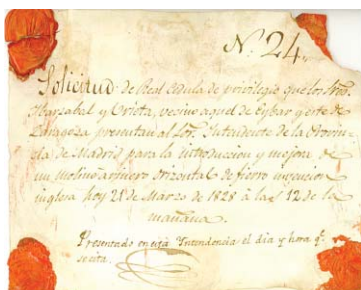 N. 24.
Solicitud de Real Cédula de privilegio que los Sres.
Ibarzabal y Urieta, vecino aquel de Eybar y este de
Zaragoza presentan al Sor. Intendente de la Provin-
cia de Madrid para la introducion y mejora de
un molino arinero orizontal de fierro invencion
inglesa hoy 28 de Marzo de 1828 á las 12 de la
mañana.
Presentado en esta Intendencia el dia y hora q.e
se cita.